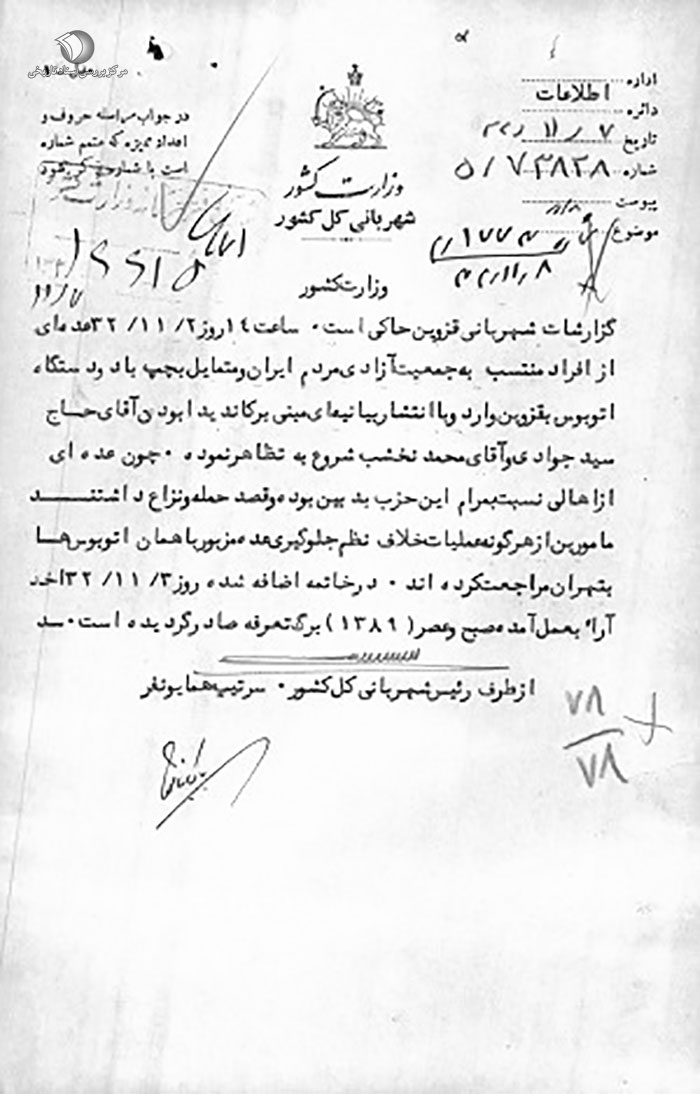 مرکز بررسی اسناد تاریخی
در جواب مراسله حروف و
اعداد ممیزه که متمم شماره
است با شماره ذکر شود
وزارت کشور
شهربانی کل کشور
اداره
اطلاعات
دائره
تاریخ ۷ / ۱۱ /
شماره ۵/۷۳۸۲۸
پیوست
موضوع
وزارت کشور
گزارشات شهربانی قزوین حاکی است ۰ ساعت ۱۴ روز ۲ / ۱۱ / ۳۲ عده ای
از افراد منتسب به جمعیت آزادی مردم ایران و متمایل بچپ با دو دستگاه
اتوبوس بقزوین وارد و با انتشار بیانیه ای مبنی بر کاندیدا بودن آقای حاج
سید جوادی و آقای محمد نخشب شروع به تظاهر نموده ۰ چون عده ای
از اهالی نسبت بمرام این حزب بدبین بوده و قصد حمله و نزاع داشتند
مامورین از هرگونه عملیات خلاف نظم جلوگیری عده مزبور با همان اتوبوس ها
بتهران مراجعت کرده اند ۰ در خاتمه اضافه شده روز ۳ / ۱۱ / ۳۲ اخذ
آراء بعمل آمده صبح و عصر ( ۱۳۸۹ ) برگ تعرفه صادر گردیده است ۰ سد
از طرف رئیس شهربانی کل کشور ۰ سرتیپ همایونفر
۷۸
۷۸